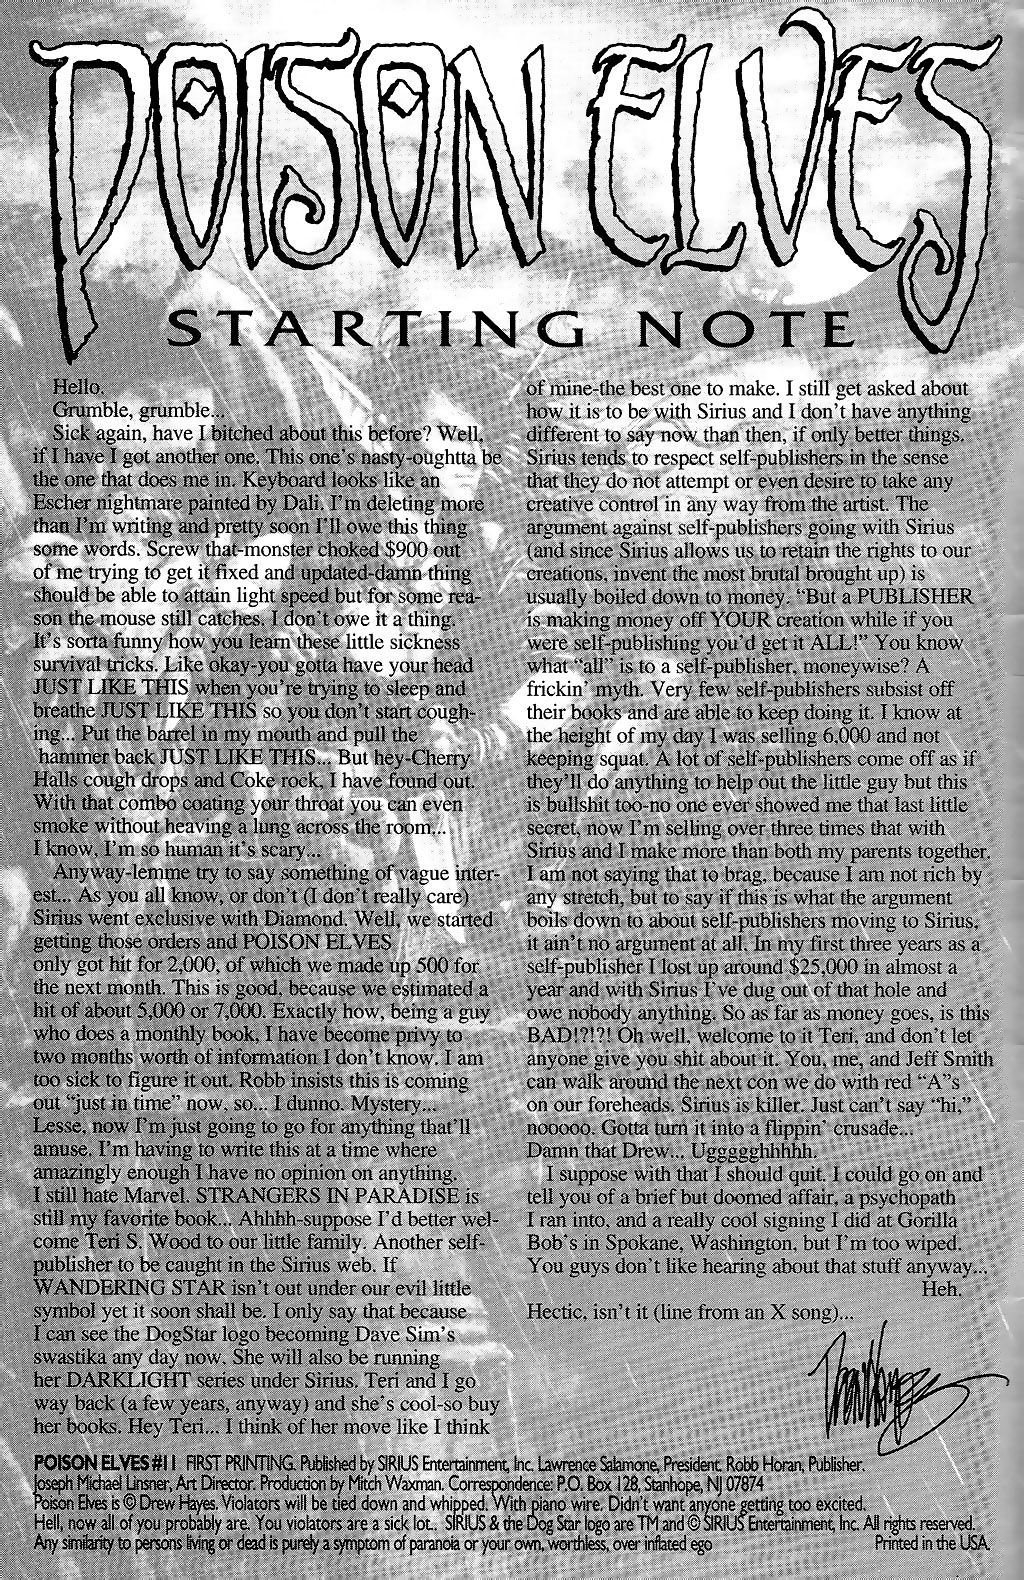 POISON ELVES
STARTING NOTE
Hello.
Grumble, grumble...
Sick again, have I bitched about this before? Well,
if I have I got another one. This one's nasty-oughtta be
the one that does me in. Keyboard looks like an
Escher nightmare painted by Dali. I'm deleting more
than I'm writing and pretty soon I'll owe this thing
some words. Screw that-monster choked $900 out
of me trying to get it fixed and updated-damn thing
should be able to attain light speed but for some rea-
son the mouse still catches. I don't owe it a thing.
It's sorta funny how you learn these little sickness
survival tricks. Like okay-you gotta have your head
JUST LIKE THIS when you're trying to sleep and
breathe JUST LIKE THIS so you don't start cough-
ing... Put the barrel in my mouth and pull the
hammer back JUST LIKE THIS... But hey-Cherry
Halls cough drops and Coke rock, I have found out.
With that combo coating your throat you can even
smoke without heaving a lung across the room...
I know, I'm so human it's scary...
Anyway-lemme try to say something of vague inter-
est... As you all know, or don't (I don't really care)
Sirius went exclusive with Diamond. Well, we started
getting those orders and POISON ELVES
only got hit for 2,000, of which we made up 500 for
the next month. This is good, because we estimated a
hit of about 5,000 or 7,000. Exactly how, being a guy
who does a monthly book, I have become privy to
two months worth of information I don't know. I am
too sick to figure it out. Robb insists this is coming
out "just in time" now, so... I dunno. Mystery...
Lesse, now I'm just going to go for anything that'll
amuse. I'm having to write this at a time where
amazingly enough I have no opinion on anything.
I still hate Marvel. STRANGERS IN PARADISE is
still my favorite book... Ahhhh-suppose I'd better wel-
come Teri S. Wood to our little family. Another self-
publisher to be caught in the Sirius web. If
WANDERING STAR isn't out under our evil little
symbol yet it soon shall be. I only say that because
I can see the DogStar logo becoming Dave Sim's
swastika any day now. She will also be running
her DARKLIGHT series under Sirius. Teri and I go
way back (a few years, anyway) and she's cool-so buy
her books. Hey Teri... I think of her move like I think
of mine-the best one to make. I still get asked about
how it is to be with Sirius and I don't have anything
different to say now than then, if only better things.
Sirius tends to respect self-publishers in the sense
that they do not attempt or even desire to take any
creative control in any way from the artist. The
argument against self-publishers going with Sirius
(and since Sirius allows us to retain the rights to our
creations, invent the most brutal brought up) is
usually boiled down to money. "But a PUBLISHER
is making money off YOUR creation while if you
were self-publishing you'd get it ALL!" You know
what "all" is to a self-publisher, moneywise? A
frickin' myth. Very few self-publishers subsist off
their books and are able to keep doing it. I know at
the height of my day I was selling 6,000 and not
keeping squat. A lot of self-publishers come off as if
they'll do anything to help out the little guy but this
is bullshit too-no one ever showed me that last little
secret, now I'm selling over three times that with
Sirius and I make more than both my parents together.
I am not saying that to brag, because I am not rich by
any stretch, but to say if this is what the argument
boils down to about self-publishers moving to Sirius,
it ain't no argument at all. In my first three years as a
self-publisher I lost up around $25,000 in almost a
year and with Sirius I've dug out of that hole and
owe nobody anything. So as far as money goes, is this
BAD!?!?! Oh well, welcome to it Teri, and don't let
anyone give you shit about it. You, me, and Jeff Smith
can walk around the next con we do with red "A"s
on our foreheads. Sirius is killer. Just can't say "hi,"
nooooo. Gotta turn it into a flippin' crusade...
Damn that Drew... Uggggghhhhh.
I suppose with that I should quit. I could go on and
tell you of a brief but doomed affair, a psychopath
I ran into, and a really cool signing I did at Gorilla
Bob's in Spokane, Washington, but I'm too wiped.
You guys don't like hearing about that stuff anyway...
Heh.
Hectic, isn't it (line from an X song)...
POISON ELVES #11 FIRST PRINTING. Published by SIRIUS Entertainment, Inc. Lawrence Salamone, President. Robb Horan, Publisher.
Joseph Michael Linsner, Art Director. Production by Mitch Waxman. Correspondence: P.O. Box 128, Stanhope, NJ 07874
Poison Elves is © Drew Hayes. Violators will be tied down and whipped. With piano wire. Didn't want anyone getting too excited.
Hell, now all of you probably are. You violators are a sick lot.. SIRIUS & the Dog Star logo are TM and © SIRIUS Entertainment, Inc. All rights reserved.
Any similarity to persons living or dead is purely a symptom of paranoia or your own, worthless, over inflated ego Printed in the USA.